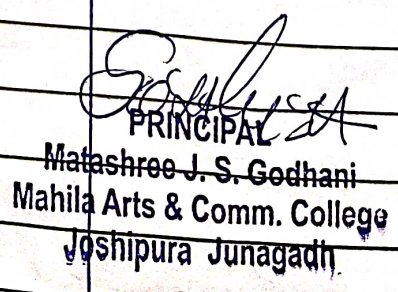 PRINCIPAL
Matashree J. S. Godhani
Mahila Arts & Comm. College
Joshipura Junagadh